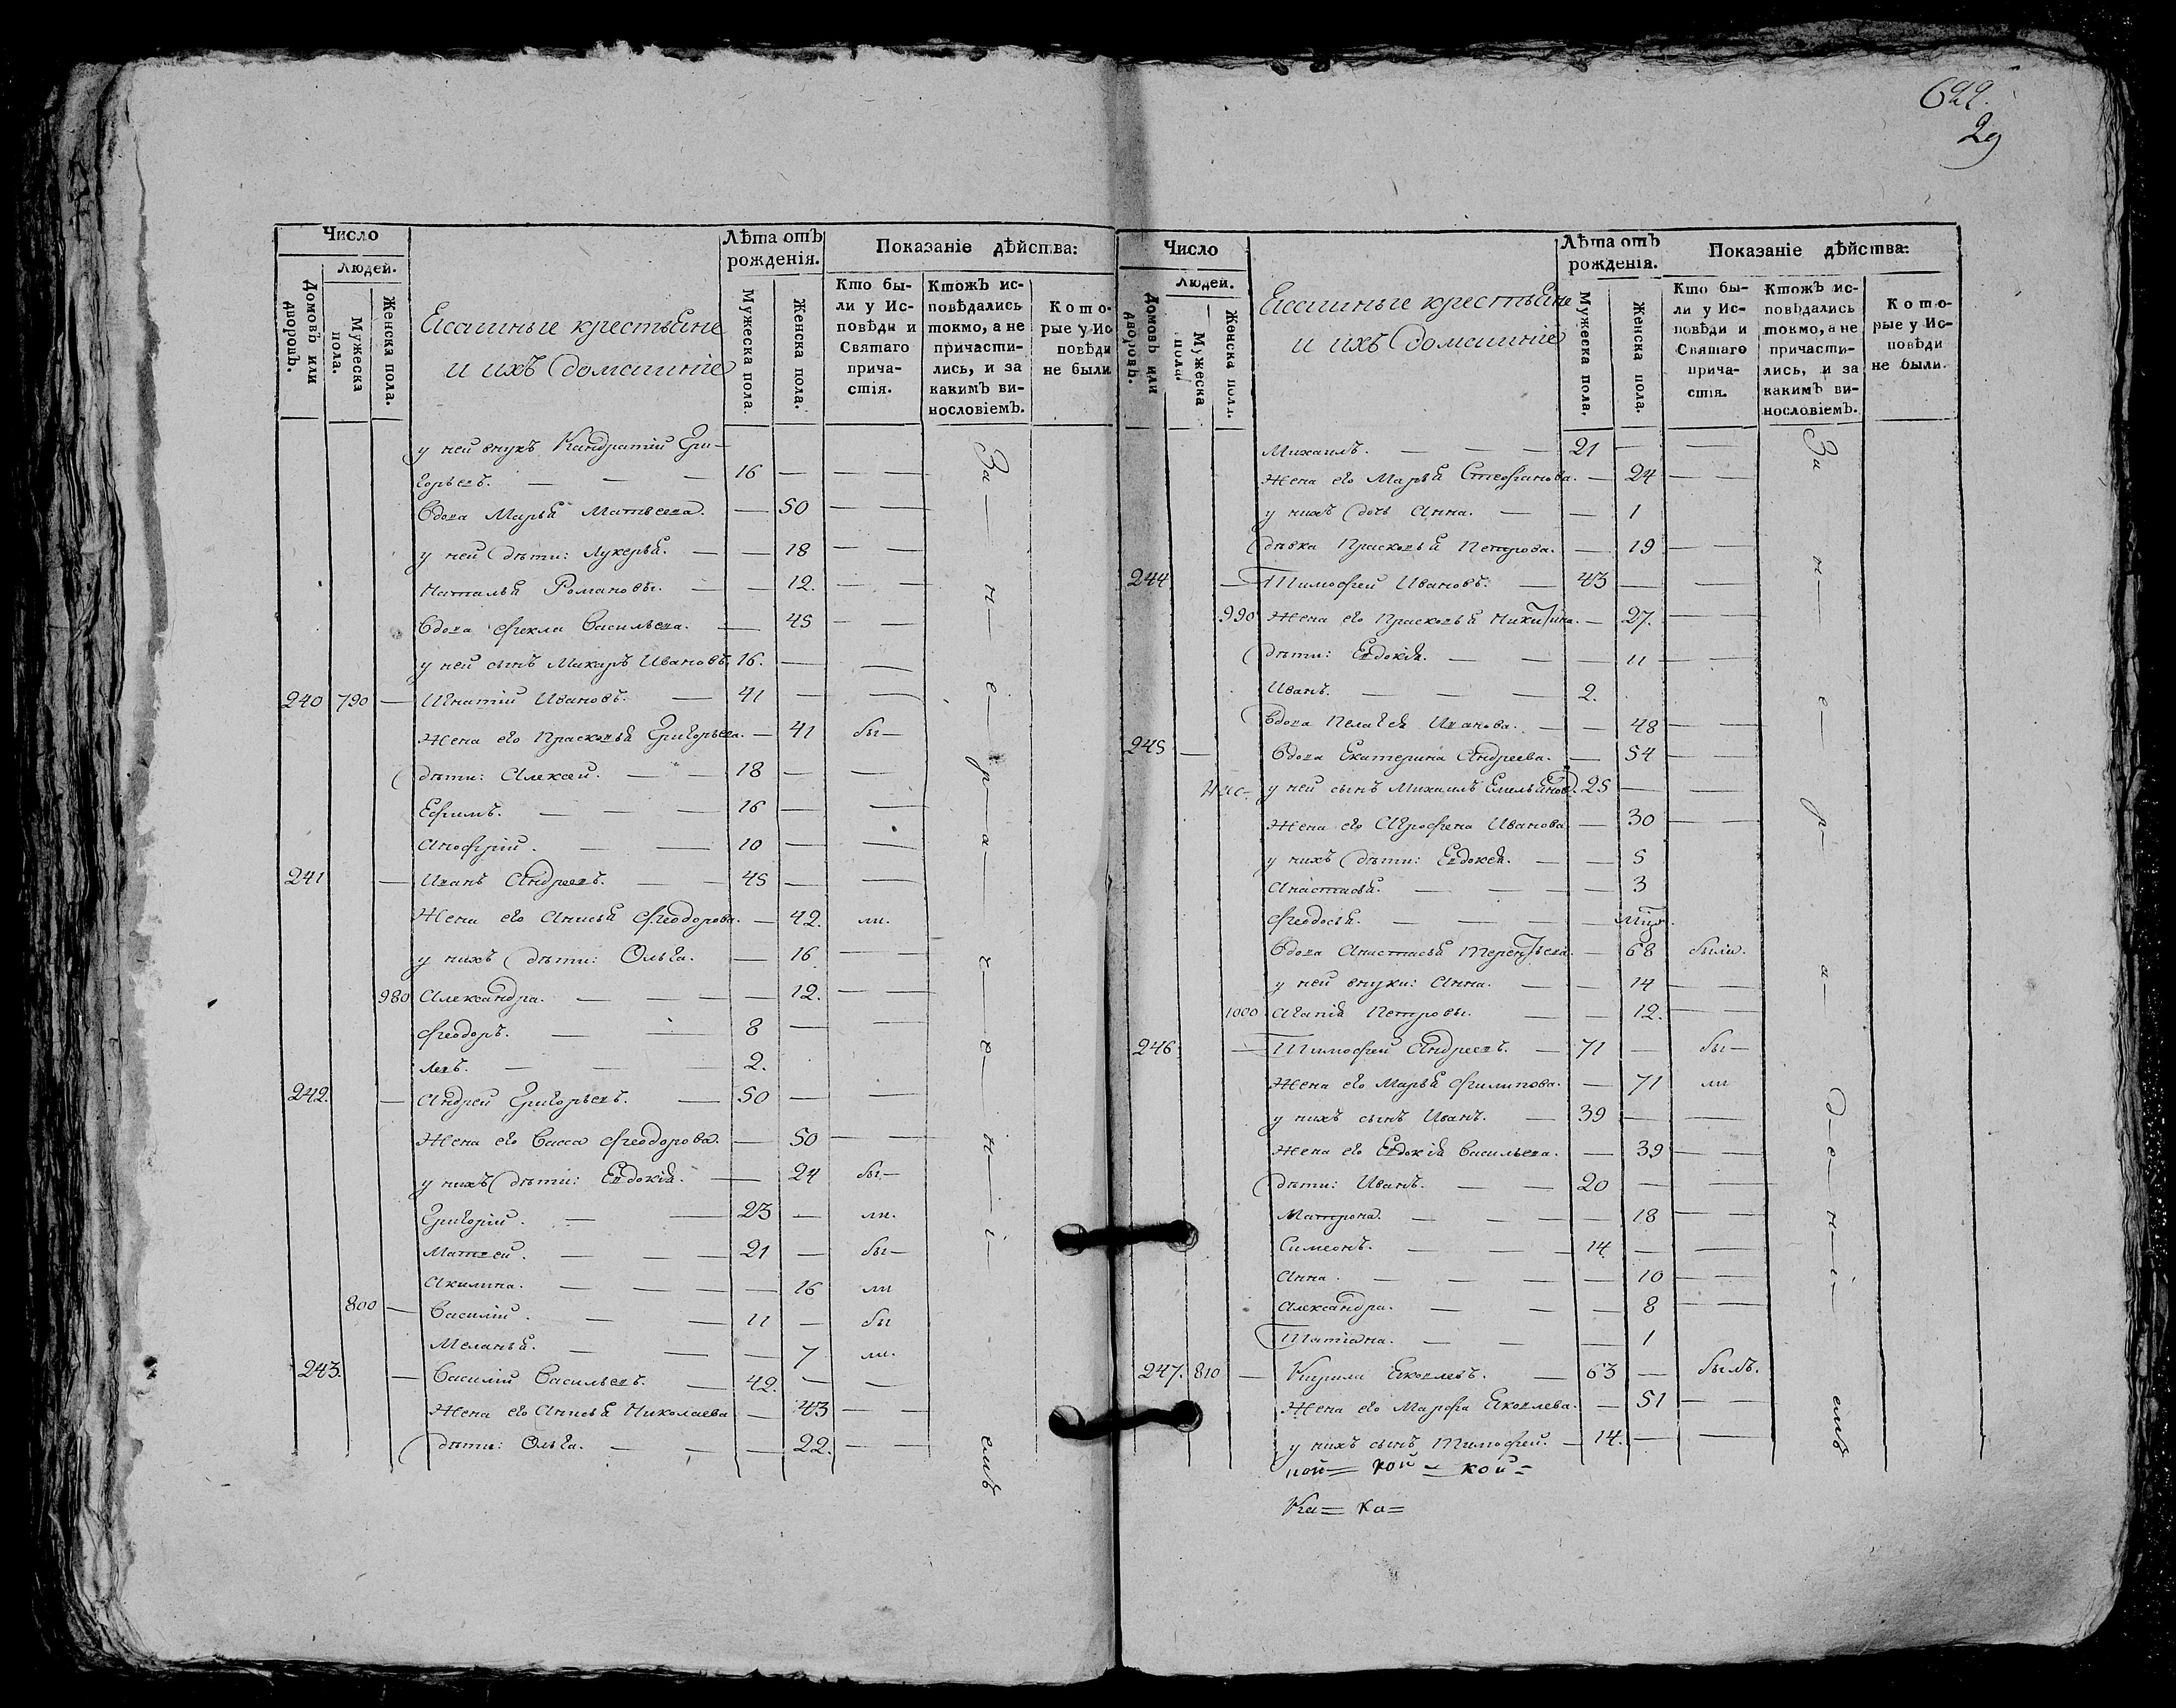 622.
29
Число
Людей.
Домовъ или дворовъ.
Мужеска пола.
Женска пола.
Ясашные крестьяне
и ихъ домашние
Лѣта отъ рожденія.
Мужеска пола.
Женска пола.
Показаніе дѣйства:
Кто бы-
ли у Ис-
повѣди и
Святаго
прича-
стія.
Ктожъ ис-
повѣдались
токмо, а не
причасти-
лись, и за
какимъ ви-
нословіемъ.
Кото-
рые у Ис-
повѣди
не были
у ней внукъ Кандратий Гри-
горьевъ. — — — 16 — — —
Вдова Марья Матвеева. — 50 — —
у ней дѣти: Лукерья. — — 18 — —
Наталья Романовы. — — 12. — —
Вдова Фекла Васильева. — 45 — —
у ней сынъ Макаръ Ивановъ. 16. — —
240 790 — Игнатий Ивановъ. — 41 — —
Жена его Прасковья Григорьева. — 41 бы-
дѣти: Алексей. — — 18 — —
Ефимъ. — — — 16 — —
Анофрий. — — 10 — —
241 — Иванъ Андреевъ. — — 45 — —
Жена его Анисья Феодорова. — 42. ли.
у нихъ дѣти: Ольга. — 16 — —
980 Александра. — — — — 12. — —
Феодоръ. — — 8 — —
Левъ. — — — 2.
242. — Андрей Григорьевъ. — 50 — —
Жена его Васса Феодорова. — 50 — —
у нихъ дѣти: Евдокія. — 24 бы-
Григорий. — — 23 — ли.
Матвей. — — — 21 — бы-
Акилина. — — — — 16 ли
800 — Василий. — — 11 — бы
Меланья. — — — 7 ли.
243. — Василий Васильевъ. — 42. — —
Жена его Анисья Николаева — 43 — —
дѣти: Ольга. — — — 22. — —
За — н — е — р — а — ч — е — н — і — емъ
Число
Людей.
Домовъ или дворовъ.
Мужеска пола.
Женска пола.
Ясашные крестьяне
и ихъ домашние
Лѣта отъ рожденія.
Мужеска пола.
Женска пола.
Показаніе дѣйства:
Кто бы-
ли у Ис-
повѣди и
Святаго
прича-
стія.
Ктожъ ис-
повѣдались
токмо, а не
причасти-
лись, и за
какимъ ви-
нословіемъ.
Кото-
рые у Ис-
повѣди
не были.
Михаилъ. — — — 21 — —
Жена его Марья Стефанова. — 24 — —
у нихъ дочь Анна. — — 1
дѣвка Прасковья Петрова. — 19 — —
244 — Тимофей Ивановъ. — 43 — —
990 Жена его Прасковья Никитина. — 27. — —
дѣти: Евдокія. — — — 11 — —
Иванъ. — — — 2.
Вдова Пелагея Иванова. — — 48 — —
245 — Вдова Екатерина Андреева. — 54 — —
у ней сынъ Михаилъ Емельянов. 25 — —
Жена его Агрофена Иванова — 30 — —
у нихъ дѣти: Евдокея. — — 5
Анастасья. — — — 3
Феодосья. — — —
Вдова Анастасья Терентьева. — 68 были.
у ней внуки: Анна. — — 14 — —
1000 Агапія Петровы. — — 12. — —
246. — Тимофей Андреевъ. — 71 — бы-
Жена его Марья Филипова. — 71 ли
у нихъ сынъ Иванъ. — 39 — —
Жена его Евдокія Васильева. — 39 — —
дѣти: Иванъ. — — 20 — —
Матрона. — — — — 18 — —
Симеонъ. — — — 14 — —
Анна. — — — — 10 — —
Александра. — — — 8 — —
Татіана. — — — 1
247. 810 — Кирила Яковлевъ. — 63 — былъ.
Жена его Марфа Яковлева. — 51 — —
у нихъ сынъ Тимофей. — 14. — —
За — н — е — р — а — д — е — н — і — емъ
кой= кой= кой=
Ка= ка=